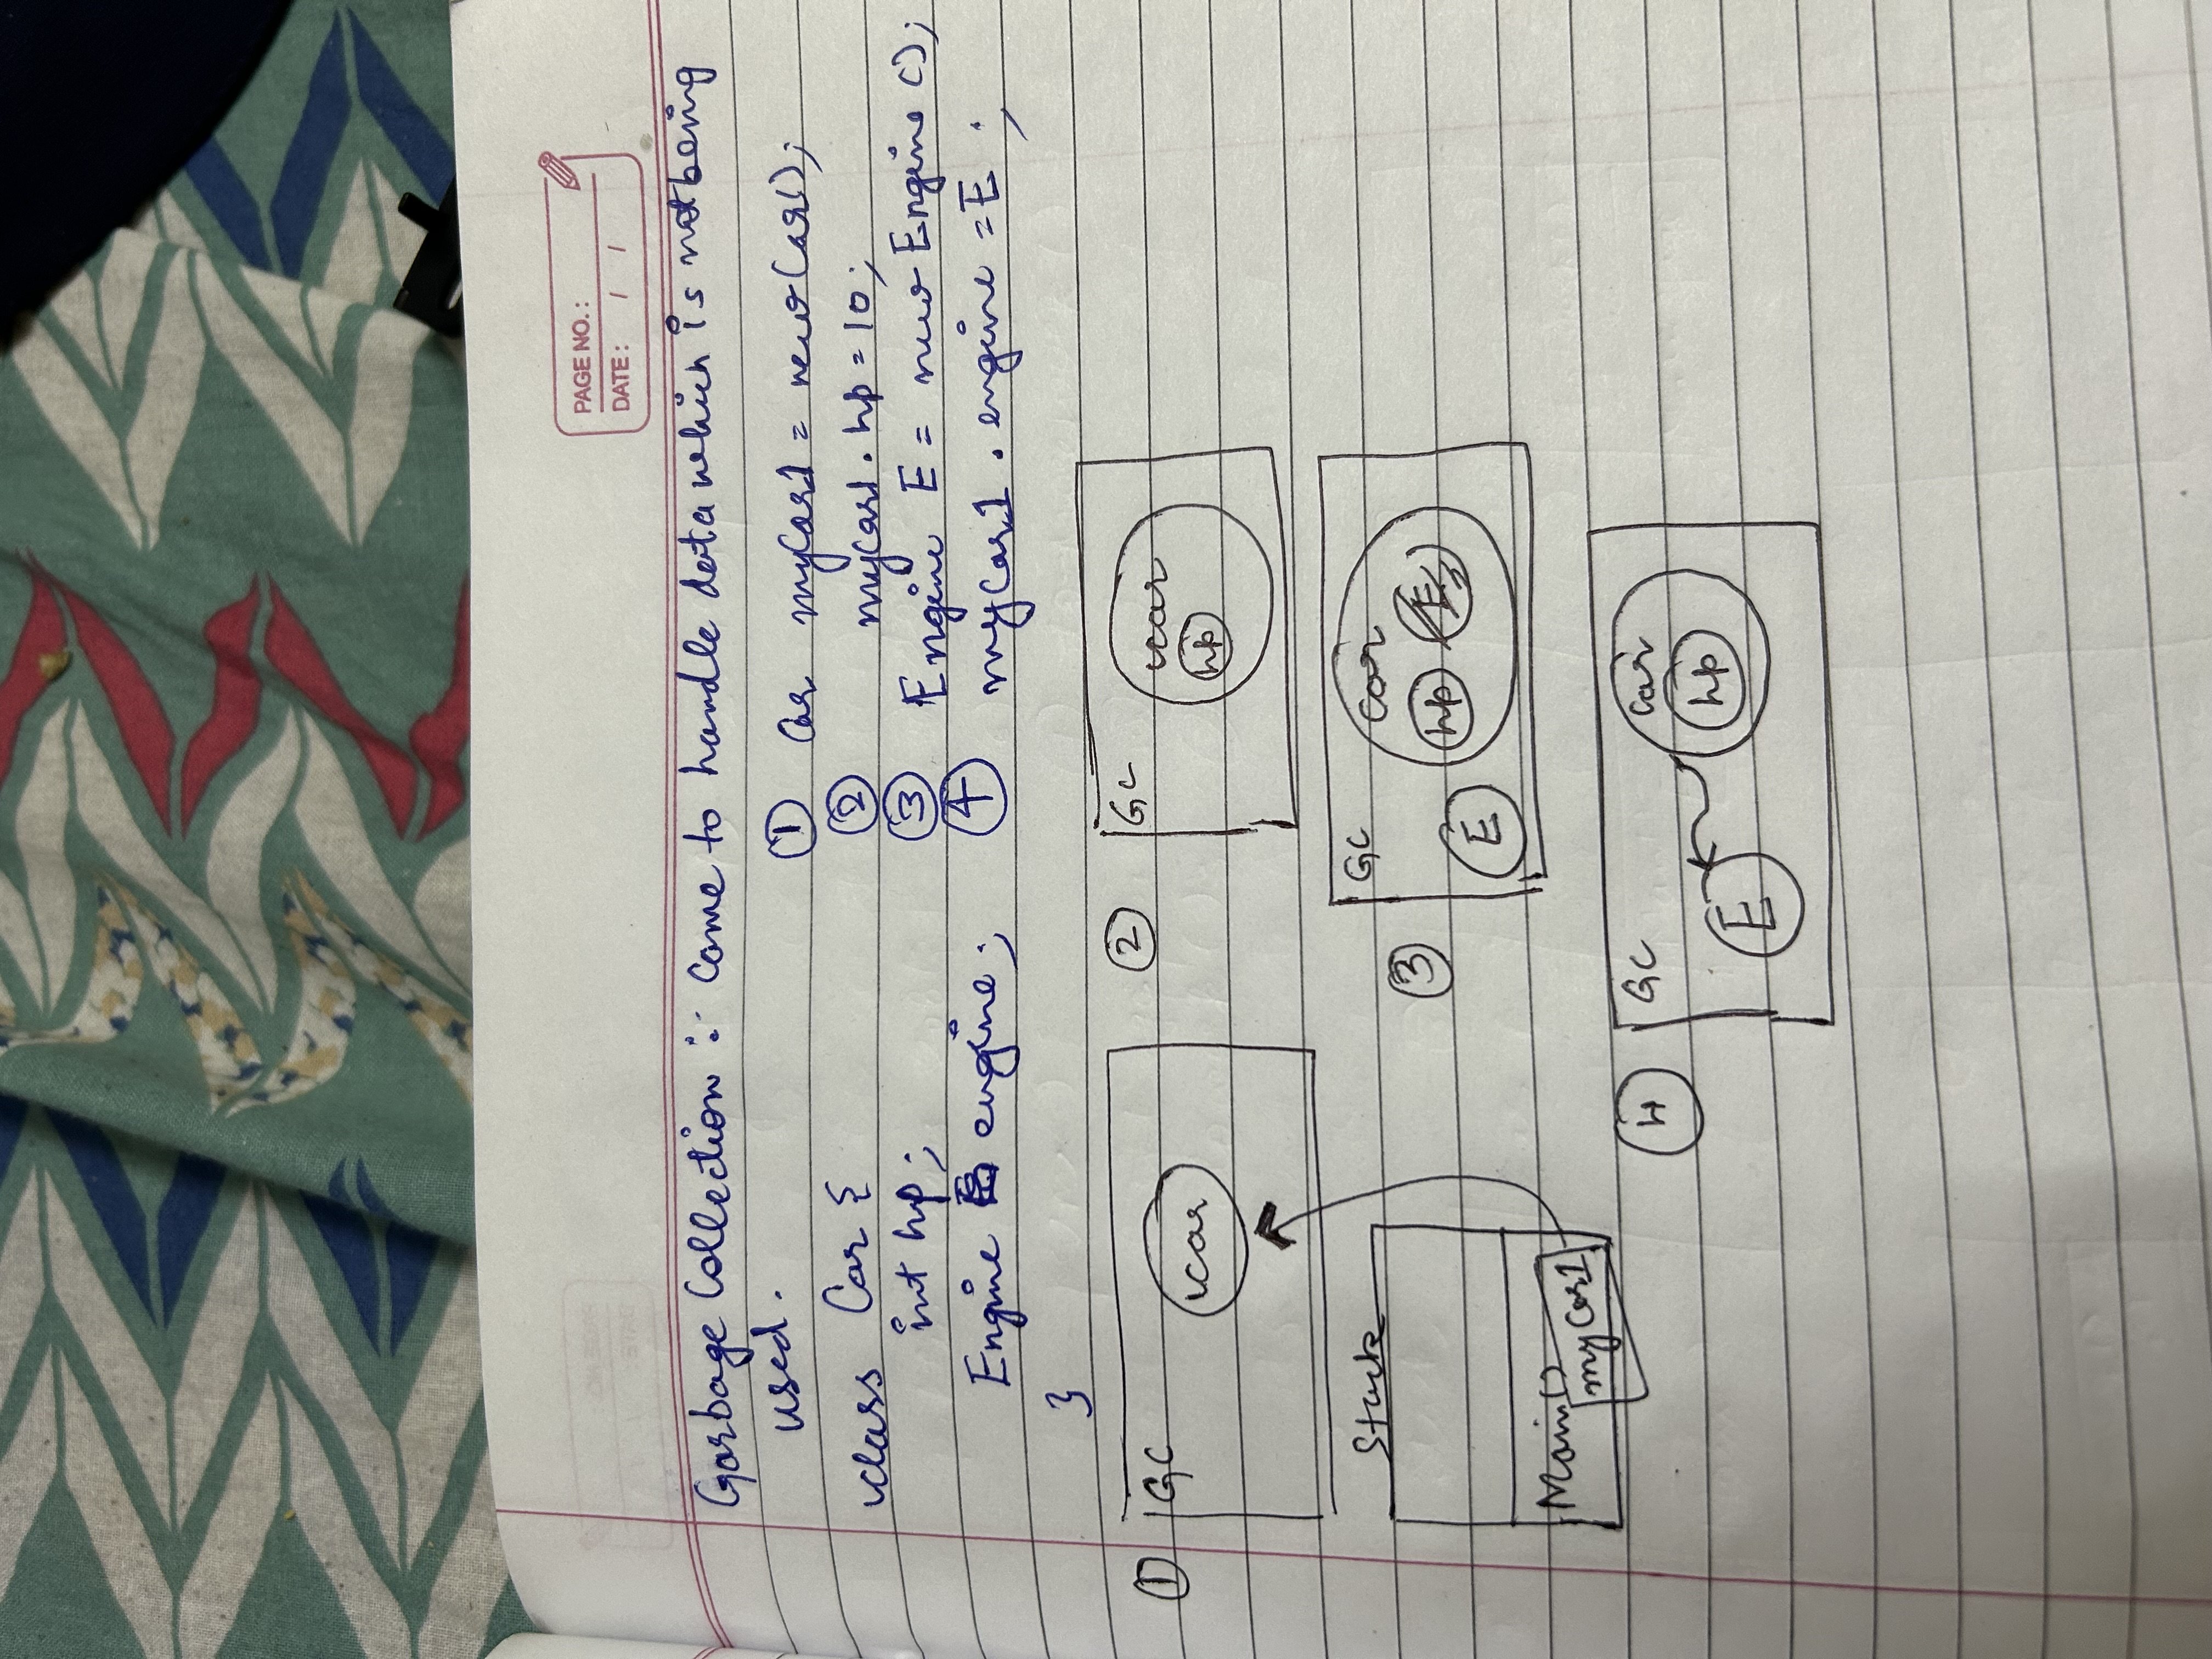 PAGE NO. :
DATE : / /
Garbage Collection :- Came to handle data which is not being
used.
class Car {
int hp;
Engine engine;
}
① Car myCar1 = new Car();
② mycar1.hp = 10;
③ Engine E = new Engine();
④ myCar1.engine = E;
①
GC
car
②
GC
car
hp
Stack
Main()
myCar1
③
GC
car
hp
E
E
④
GC
Car
hp
E